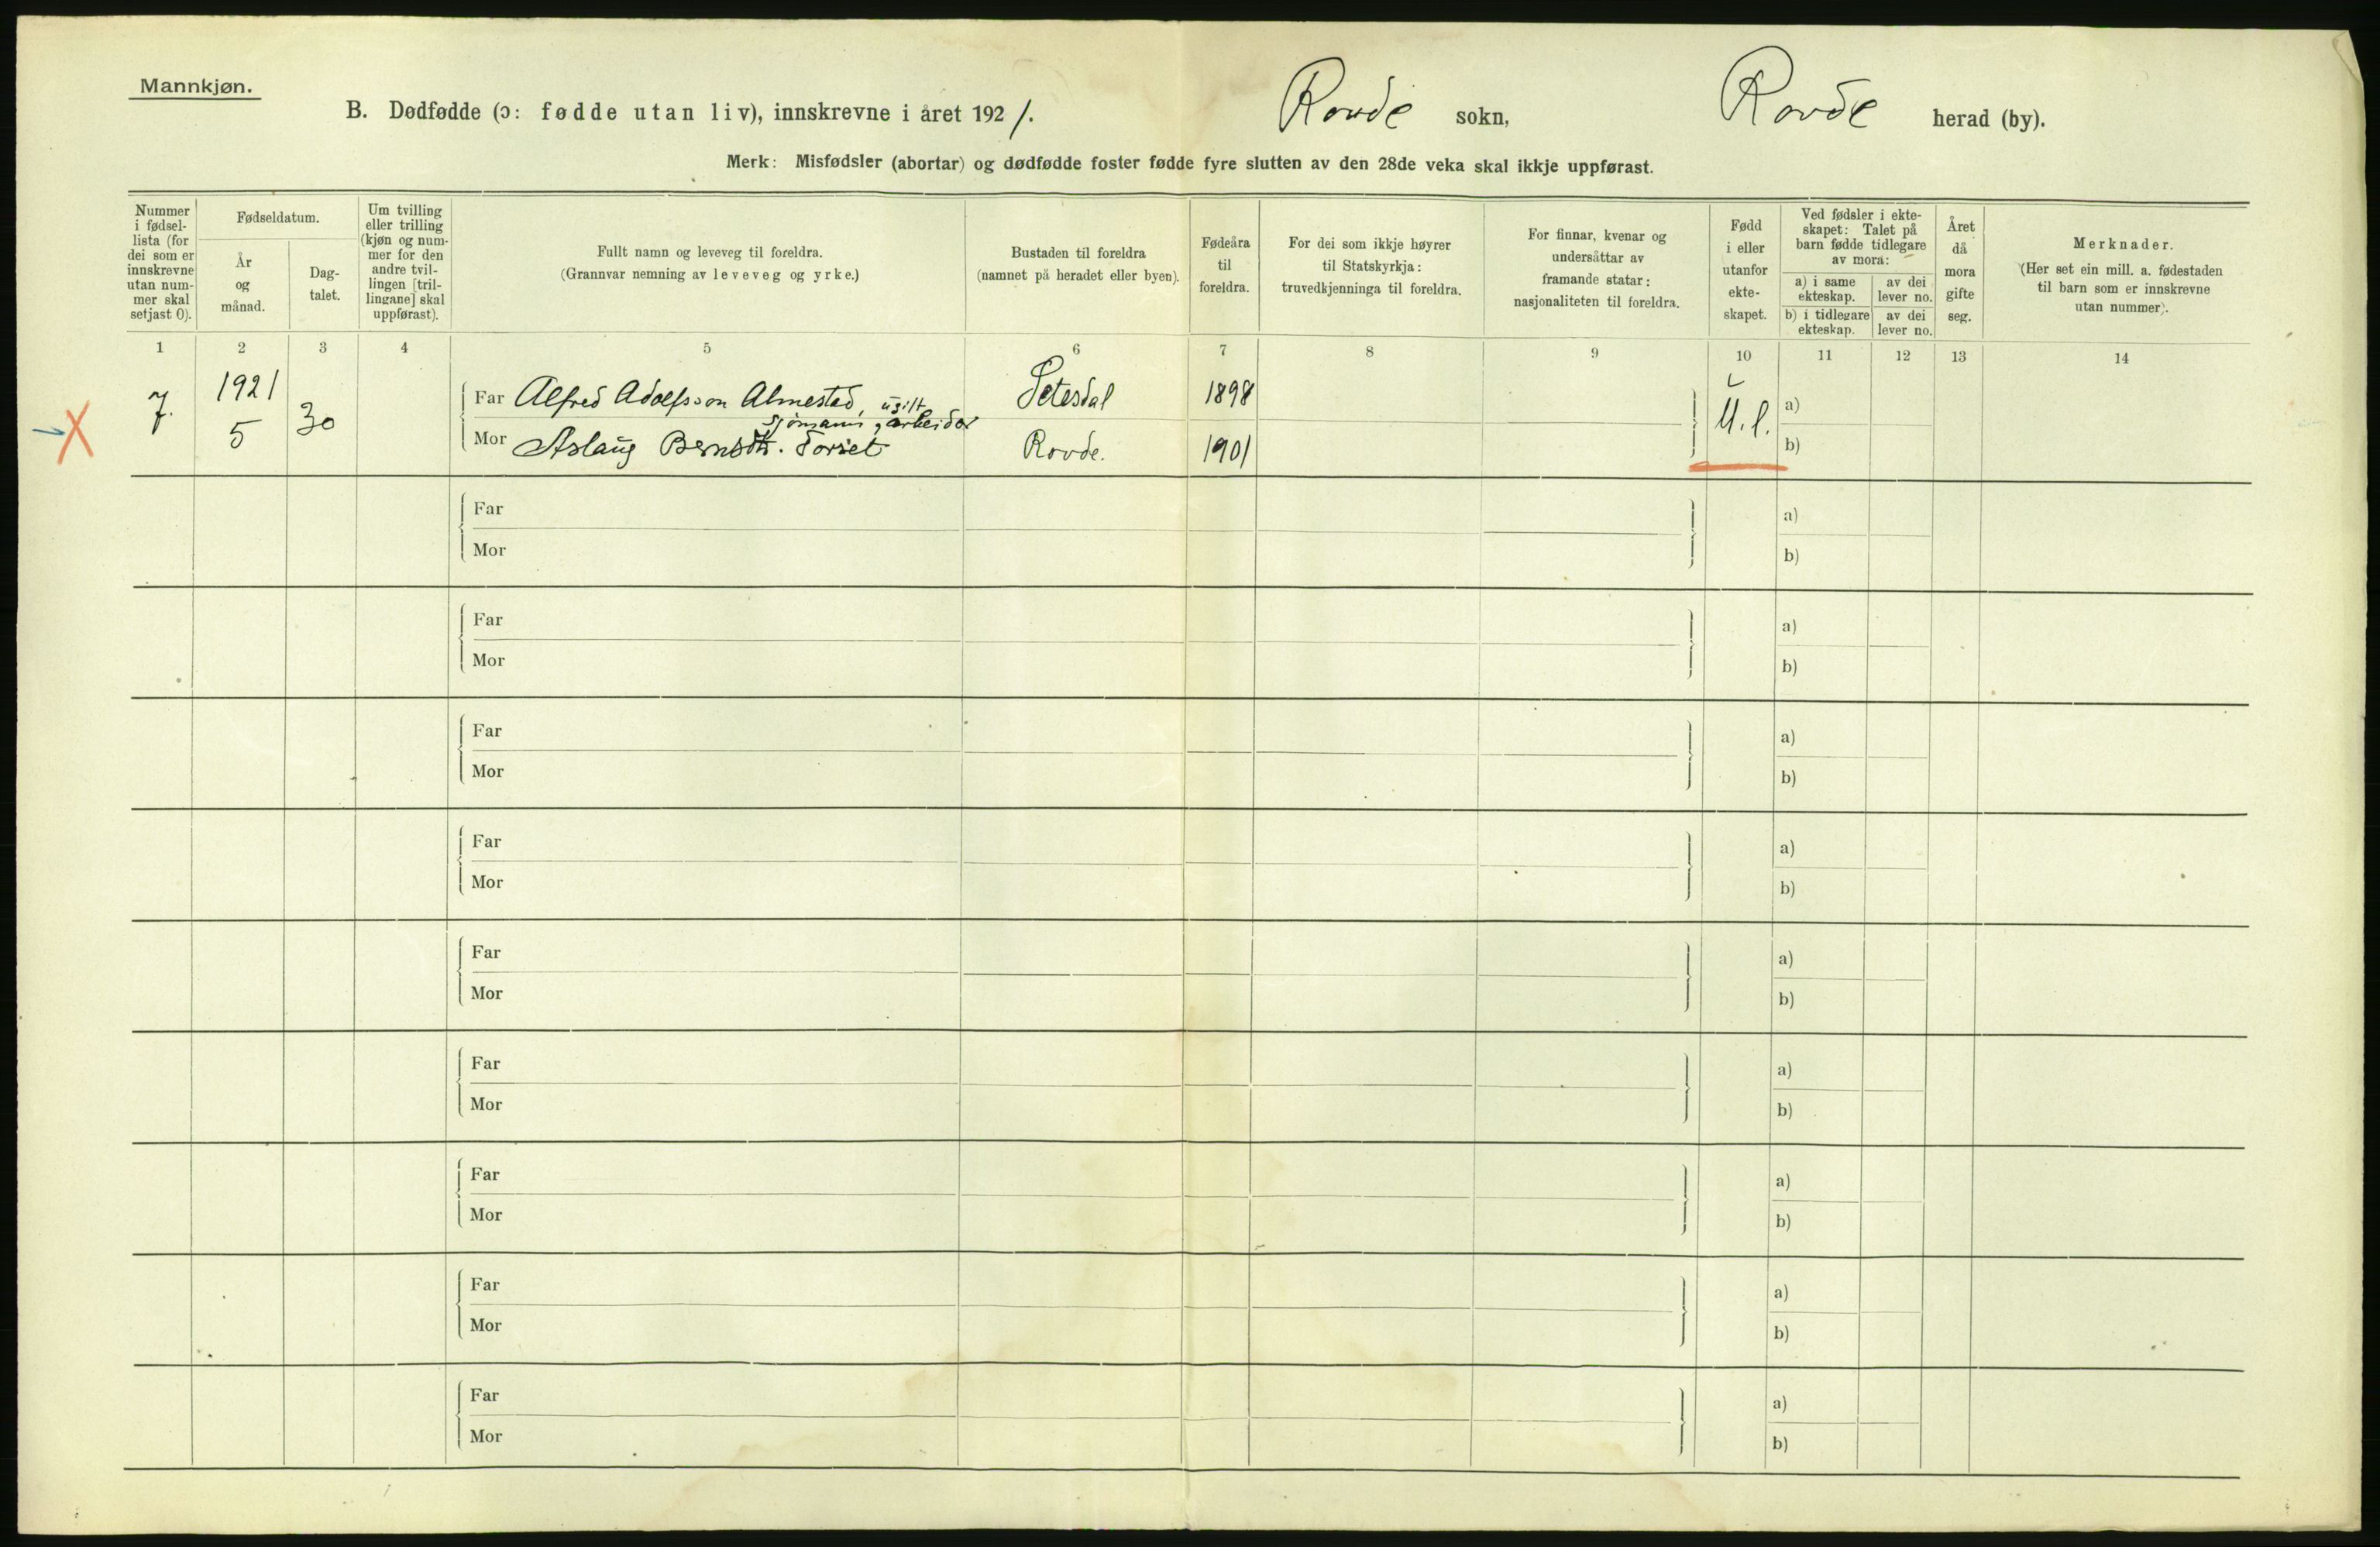 Mannkjøn.
B. Dødfødde (ɔ: fødde utan liv), innskrevne i året 1921.
Rovde sokn, Rovde herad (by).
Merk: Misfødsler (abortar) og dødfødde foster fødde fyre slutten av den 28de veka skal ikkje uppførast.
Nummer
i fødsel-
lista (for
dei som er
innskrevne
utan num-
mer skal
setjast 0).
Fødseldatum.
År
og
månad.
Dag-
talet.
Um tvilling
eller trilling
(kjøn og num-
mer for den
andre tvil-
lingen [tril-
lingane] skal
uppførast).
Fullt namn og leveveg til foreldra.
(Grannvar nemning av leveveg og yrke.)
Bustaden til foreldra
(namnet på heradet eller byen).
Fødeåra
til
foreldra.
For dei som ikkje høyrer
til Statskyrkja:
truvedkjenninga til foreldra.
For finnar, kvenar og
undersåttar av
framande statar:
nasjonaliteten til foreldra.
Fødd
i eller
utanfor
ekte-
skapet.
Ved fødsler i ekte-
skapet: Talet på
barn fødde tidlegare
av mora:
a) i same
ekteskap.
av dei
lever no.
b) i tidlegare
ekteskap.
av dei
lever no.
Året
då
mora
gifte
seg.
Merknader.
(Her set ein mill. a. fødestaden
til barn som er innskrevne
utan nummer).
1 2 3 4 5 6 7 8 9 10 11 12 13 14
7. 1921 5 30
Far Alfred Adolfsson Almestad, ugift Setesdal 1898 U. l. a)
sjømann, arbeidar
Mor Aslaug Bernsdtr. Torset Rovde. 1901 b)
Far a)
Mor b)
Far a)
Mor b)
Far a)
Mor b)
Far a)
Mor b)
Far a)
Mor b)
Far a)
Mor b)
Far a)
Mor b)
Far a)
Mor b)
Far a)
Mor b)